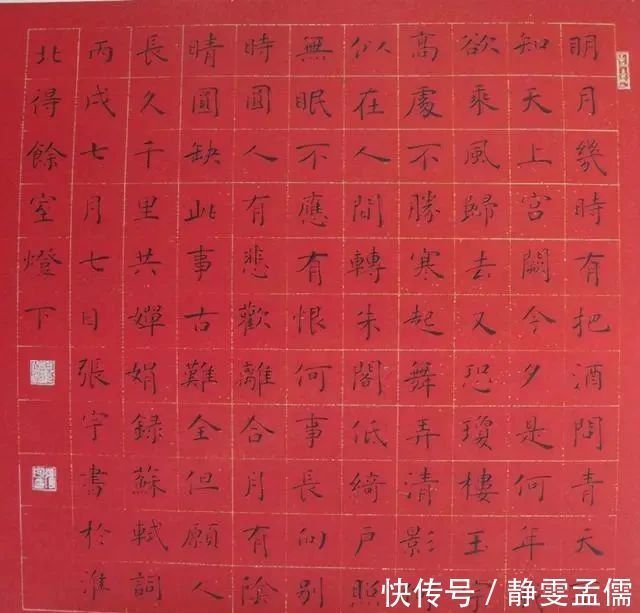 明月幾時有把酒問青天
知天上宮闕今夕是何年
欲乘風歸去又恐瓊樓玉宇
高處不勝寒起舞弄清影
似在人間轉朱閣低綺戶照
無眠不應有恨何事長向別
時圓人有悲歡離合月有陰
晴圓缺此事古難全但願人
長久千里共嬋娟錄蘇軾詞
丙戌七月七日張宇書於淮
北得餘室燈下
快传号／静雯孟儒